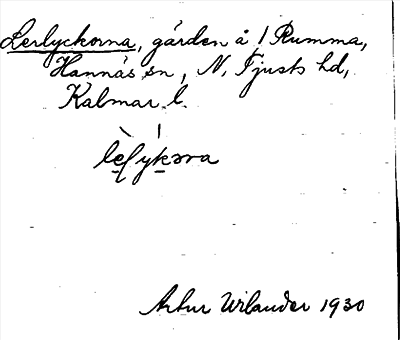 Lerlyckorna, gården å 1 Rumma,
Hannäs sn, N. Tjusts hd,
Kalmar l.
Artur Wilander 1930